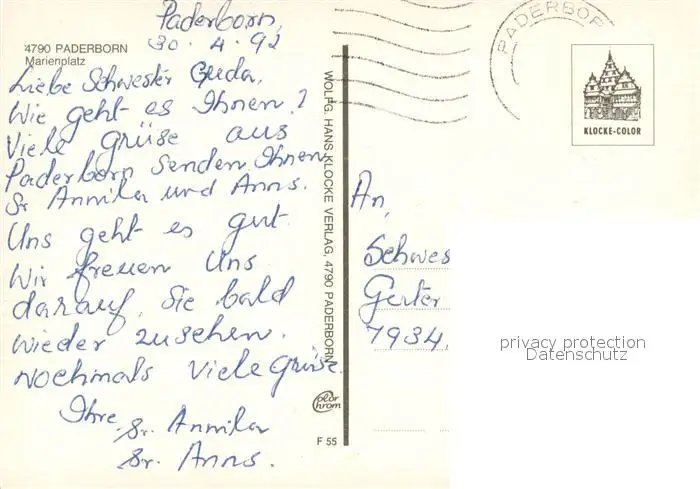 Paderborn,
30.4.92
4790 PADERBORN
Marienplatz
Liebe Schwester Guda,
Wie geht es Ihnen?
Viele grüse aus
Paderborn senden Ihnen
Sr Annila und Anns.
Uns geht es gut
Wir freuen Uns
darauf, Sie bald
wieder zusehen.
Nochmals Viele Grüse.
Ihre
Sr. Annila
Sr. Anns.
WOLFG. HANS KLOCKE VERLAG, 4790 PADERBORN
Color
chrom
F 55
PADERBOR
KLOCKE-COLOR
An,
Schwes
Gerter
7934,
privacy protection
Datenschutz